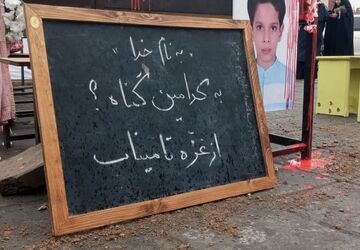 " به نام خدا "
به کدامین گناه ؟
از غزّه تا میناب